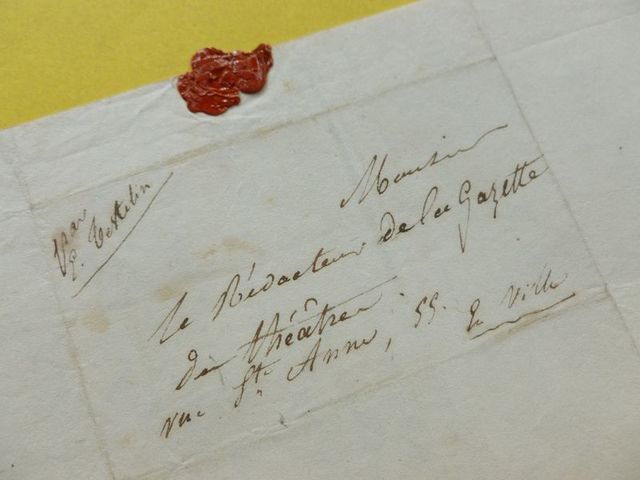 Par
E. Testelin
Monsieur
le Rédacteur de la Gazette
du théâtre.
rue Ste Anne, 55.
En Ville